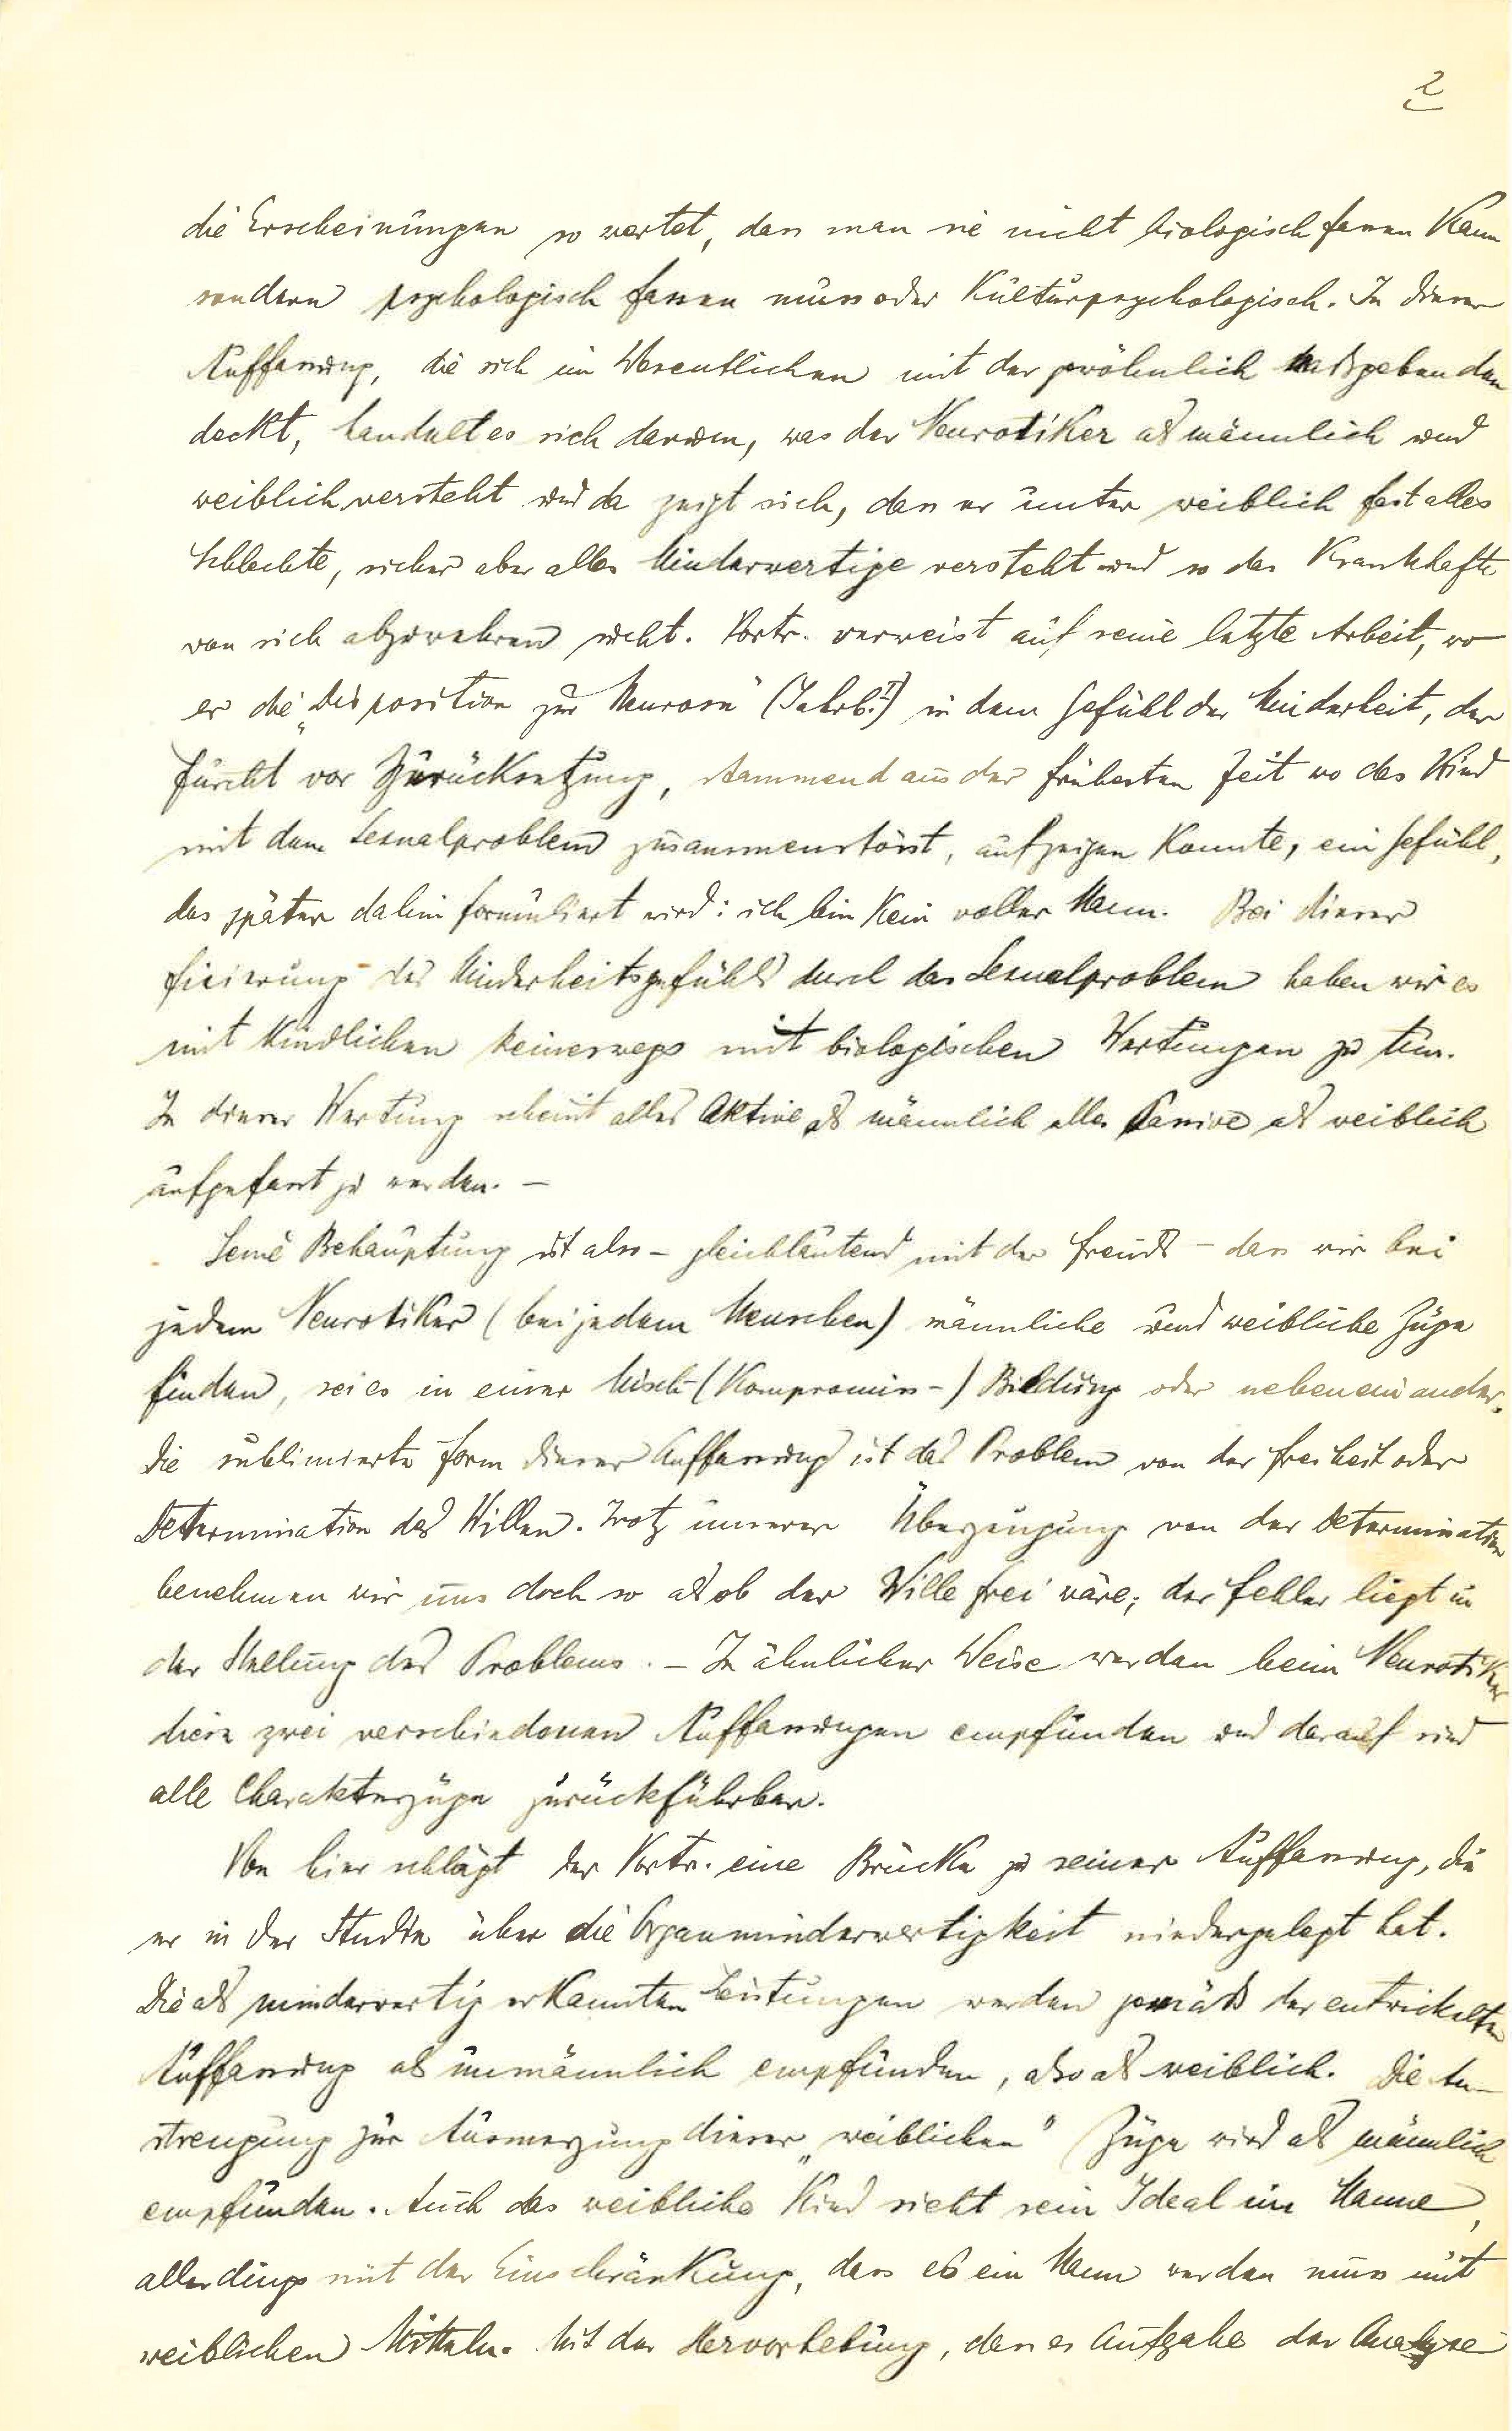 2
die Erscheinungen so wertet, dass man sie nicht biologisch fassen kann
sondern psychologisch fassen muss oder kulturpsychologisch. In dieser
Auffassung, die sich im Wesentlichen mit der gewöhnlich massgebenden
deckt, handelt es sich darum, was der Neurotiker als männlich und
weiblich versteht und da zeigt sich, dass er unter weiblich fast alles
Schlechte, sicher aber alles Minderwertige versteht und so das Krankhafte
von sich abzuwehren sucht. Vortr. verweist auf seine letzte Arbeit, wo
er die „Disposition zur Neurose" (Jahrb. I) in dem Gefühl der Minderheit, der
Furcht vor Zurücksetzung, stammend aus der frühesten Zeit wo das Kind
mit dem Sexualproblem zusammenstösst, aufzeigen konnte, ein Gefühl,
das später dahin formuliert wird: ich bin kein voller Mann. Bei dieser
Fixierung des Minderheitsgefühls durch das Sexualproblem haben wir es
mit kindlichen keineswegs mit biologischen Wertungen zu tun.
In dieser Wertung scheint alles Aktive als männlich alles Passive als weiblich
aufgefasst zu werden. –
Seine Behauptung ist also – gleichlautend mit der Freuds – dass wir bei
jedem Neurotiker (bei jedem Menschen) männliche und weibliche Züge
finden, sei es in einer Misch- (Kompromiss-) Bildung oder nebeneinander.
Die sublimierte Form dieser Auffassung ist das Problem von der Freiheit oder
Determination des Willen. Trotz unserer Überzeugung von der Determination
benehmen wir uns doch so als ob der Wille frei wäre; der Fehler liegt in
der Stellung des Problems. – In ähnlicher Weise werden beim Neurotiker
diese zwei verschiedenen Auffassungen empfunden und darauf sind
alle Charakterzüge zurückführbar.
Von hier schlägt der Vortr. eine Brücke zu seiner Auffassung, die
er in der Studie über die Organminderwertigkeit niedergelegt hat.
Die als minderwertig erkannten Leistungen werden gemäss der entwickelten
Auffassung als unmännlich empfunden, also als weiblich. Die An-
strengung zur Ausmerzung dieser „weiblichen" Züge wird als männlich
empfunden. Auch das weibliche Kind sieht sein Ideal im Manne,
allerdings mit der Einschränkung, dass es ein Mann werden muss mit
weiblichen Mitteln. Mit der Hervorhebung, dass es Aufgabe der Analyse